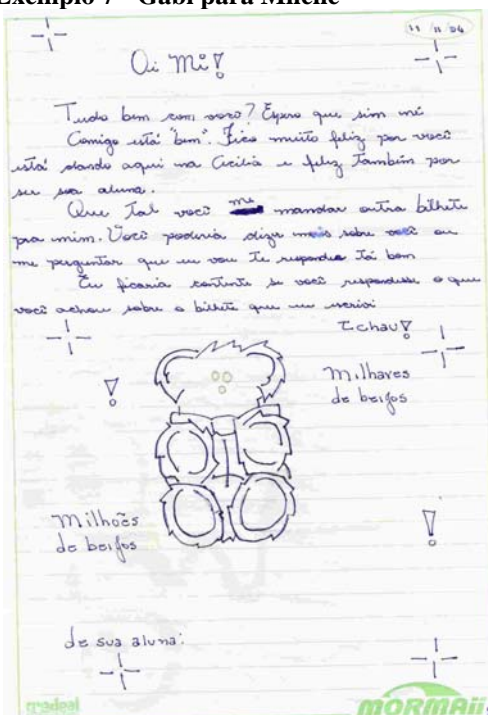 Exemplo 7 - Gabi para Milene
11/11/04
Oi Mi!
Tudo bem com você? Espero que sim né
Comigo está "bem". Fico muito feliz por você
está dando aqui na Cecília e feliz também por
ser sua aluna.
Que tal você me mandar outro bilhete
pra mim. Você poderia dizer mais sobre você ou
me perguntar que eu vou te responder tá bom
Eu ficaria contente se você respondesse o que
você achou sobre o bilhete que eu escrevi
Tchau!
!
Milhares
de beijos
Milhões
de beijos
!
de sua aluna:
credeal
MORMAII